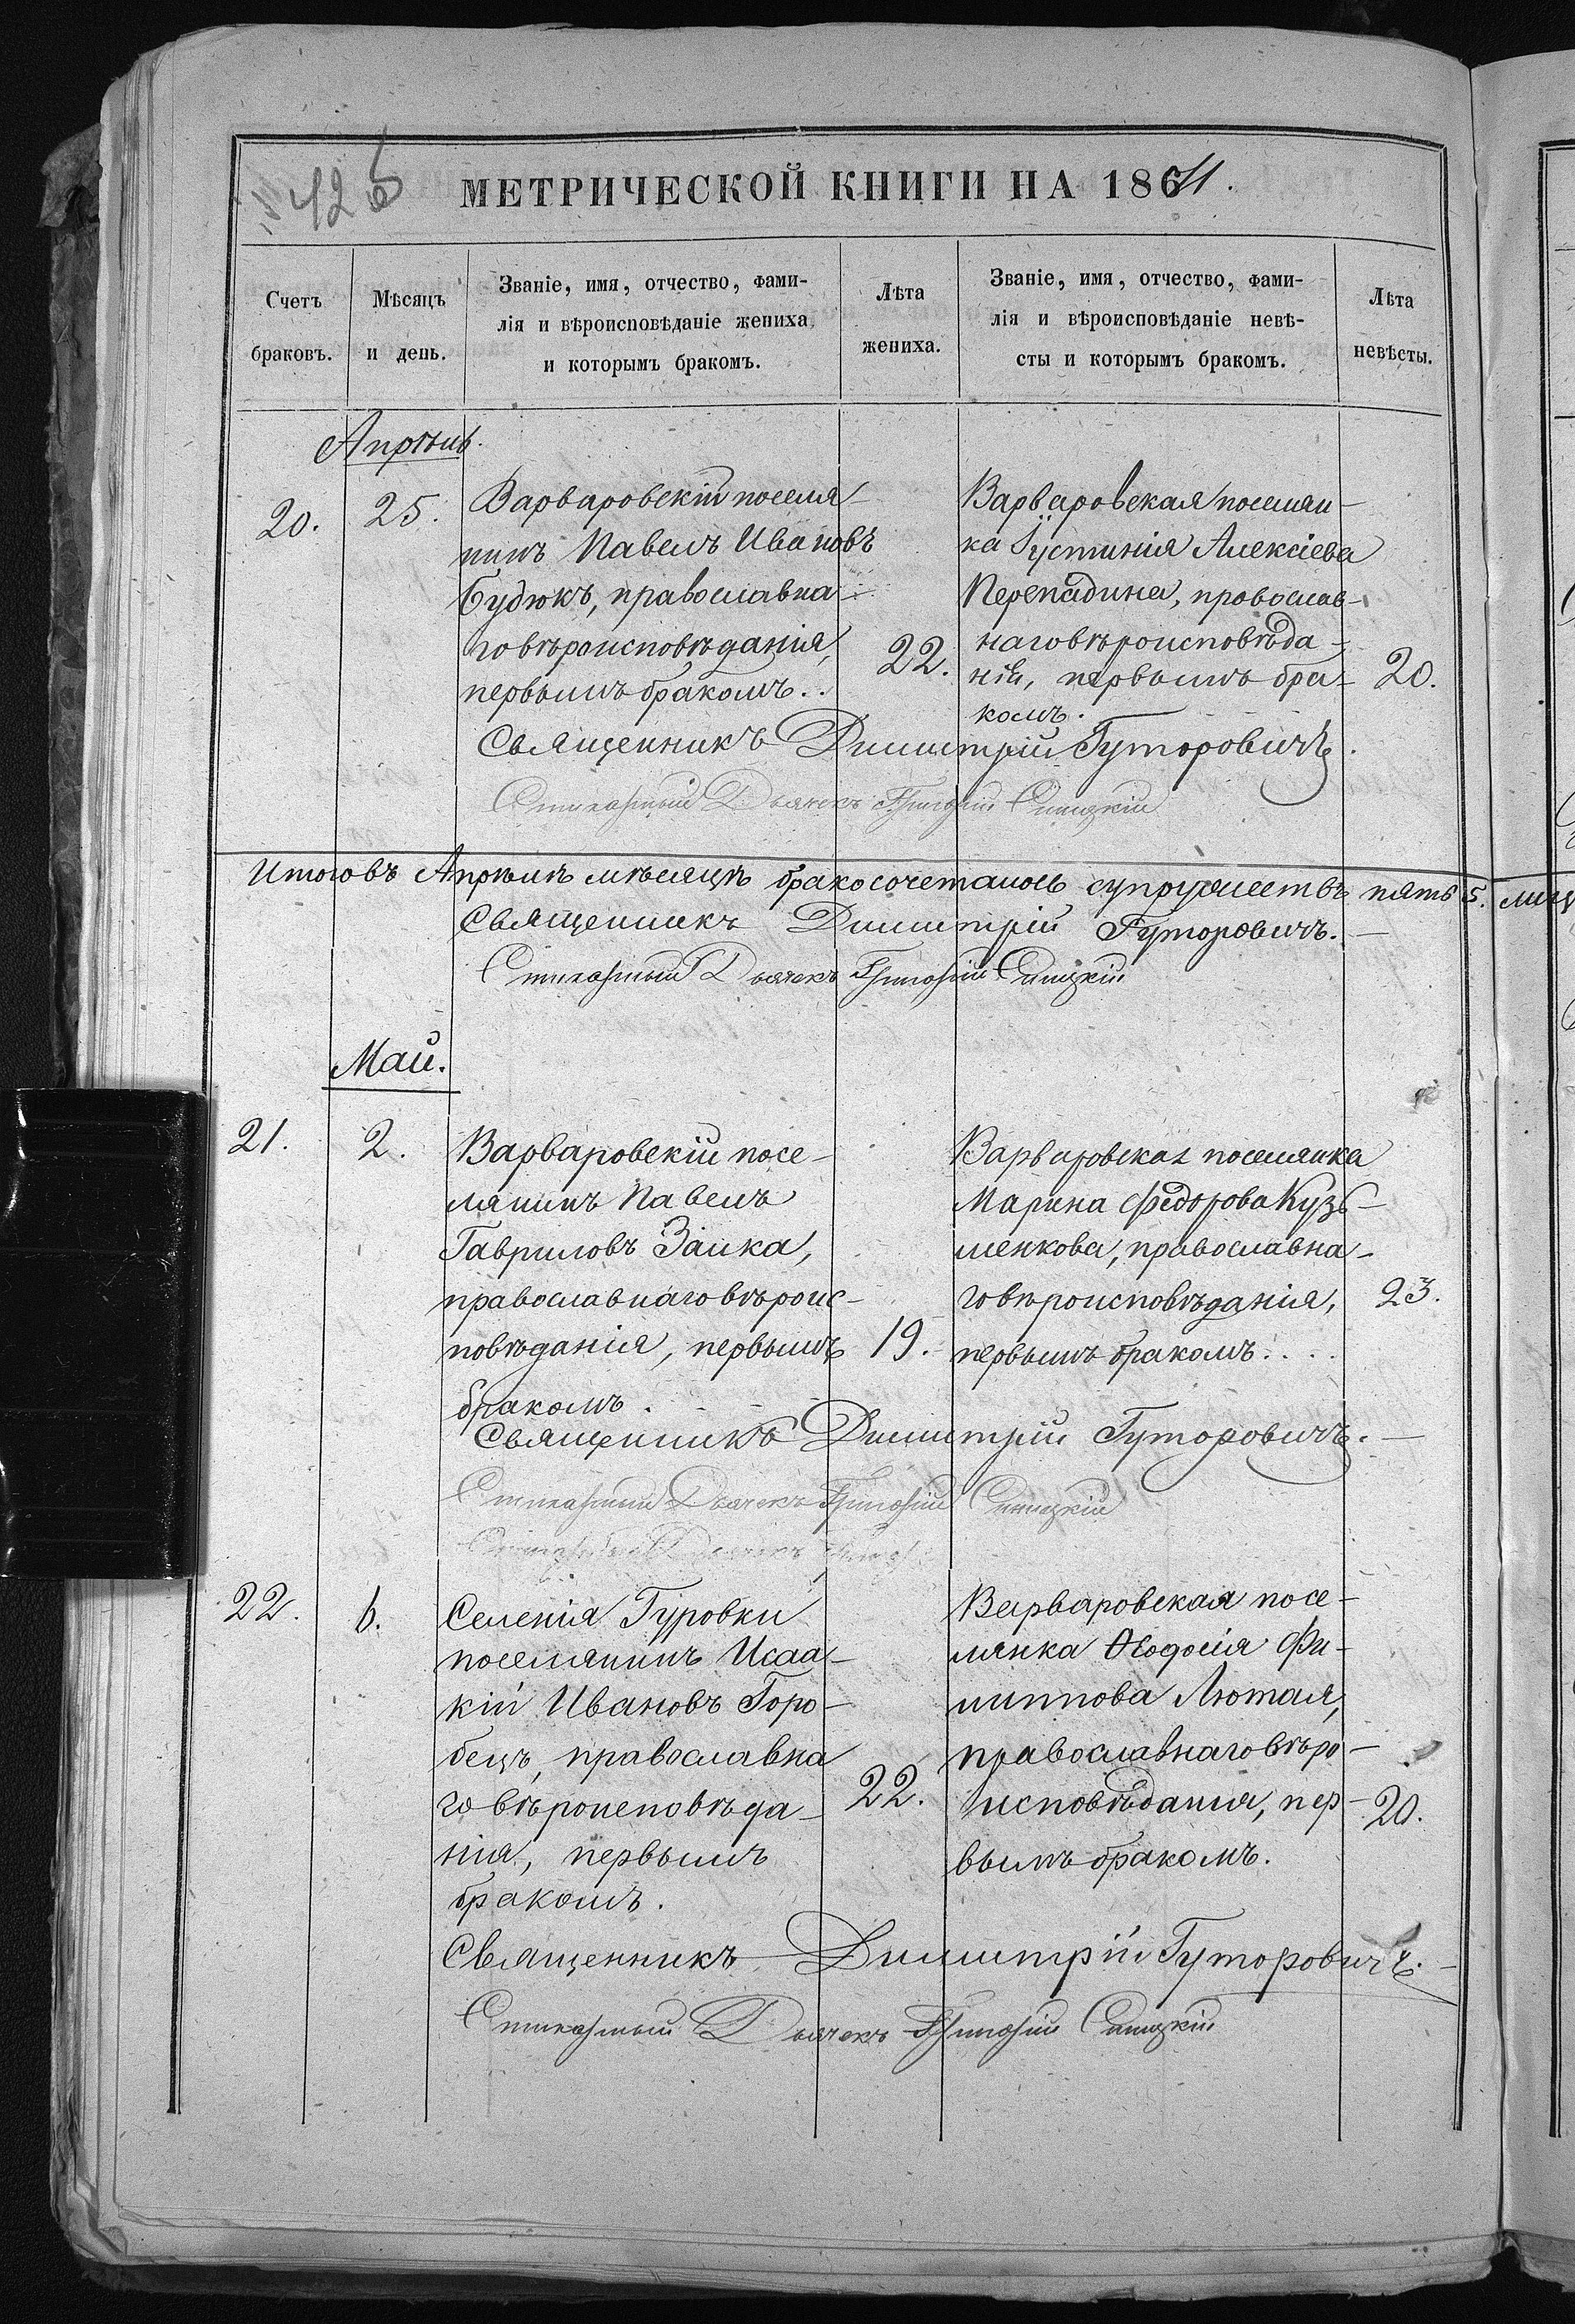 426
МЕТРИЧЕСКОЙ КНИГИ НА 1861.
Счетъ
браковъ.
Мѣсяцъ
и день.
Званіе, имя, отчество, фами-
лія и вѣроисповѣданіе жениха
и которымъ бракомъ.
Лѣта
жениха.
Званіе, имя, отчество, фами-
лія и вѣроисповѣданіе невѣ-
сты и которымъ бракомъ.
Лѣта
невѣсты.
Апрѣль.
20.
25.
Варваровскій поселя-
нинъ Павелъ Ивановъ
Будюкъ, православна-
го вѣроисповѣданія,
первымъ бракомъ..
22.
Варваровская поселян-
ка Іустинія Алексіева
Перепадина, провослав-
наго вѣроисповѣда-
нія, первымъ бра-
комъ.
20.
Священникъ Димитрій Гуторовичъ.
Стихарный Дьячекъ Григорій Синицкій
Итого въ Апрѣлѣ мѣсяцѣ бракосочеталось супружествъ пять 5.
Священникъ Димитрій Гуторовичъ.
Стихарный Дьячекъ Григорій Синицкій
Май.
21.
2.
Варваровскій посе-
лянинъ Павелъ
Гавриловъ Заика,
православнаго вѣроис-
повѣданія, первымъ
бракомъ.
19.
Варваровская поселянка
Марина Федорова Кузь-
менкова, православна-
го вѣроисповѣданія,
первымъ бракомъ....
23.
Священникъ Димитрій Гуторовичъ.
Стихарный Дьячекъ Григорій Синицкій
Стихарный Дьячекъ
22.
6.
Селенія Гуровки
поселянинъ Исаа-
кій Ивановъ Горо-
бецъ, православна
го вѣроисповѣда-
нія, первымъ
бракомъ.
22.
Варваровская посе-
лянка Ѳеодосія Фи-
липпова Лютая,
православнаго вѣро-
исповѣданія, пер-
вымъ бракомъ.
20.
Священникъ Димитрій Гуторовичъ.
Стихарный Дьячекъ Григорій Синицкій